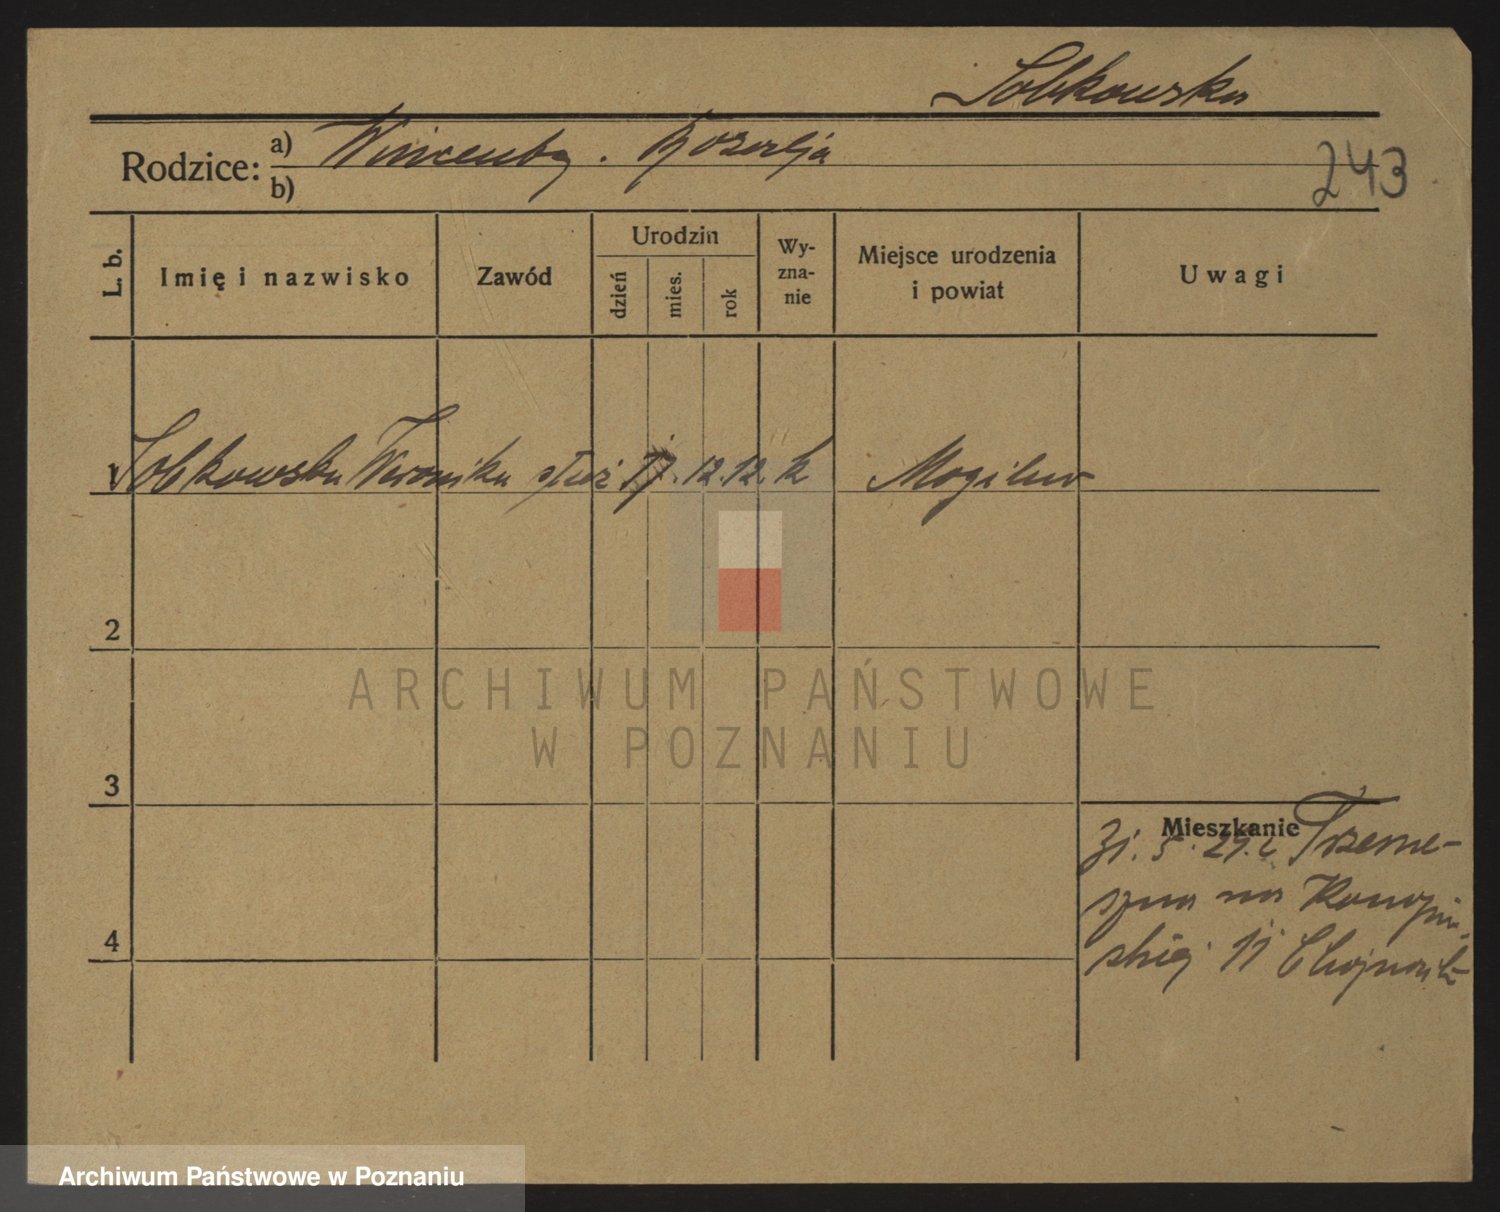 Sobkowska
Rodzice: a) Wincenty. Rozalja
b)
243
L. b.
Imię i nazwisko
Zawód
Urodzin
dzień
mies.
rok
Wy-
zna-
nie
Miejsce urodzenia
i powiat
Uwagi
1 Sobkowska Weronika służ 17. 12. 12. k Mogilno
2
3
4
Mieszkanie
5. 29. Trzeme-
szna na
skiej 11
ARCHIWUM PAŃSTWOWE
W POZNANIU
Archiwum Państwowe w Poznaniu